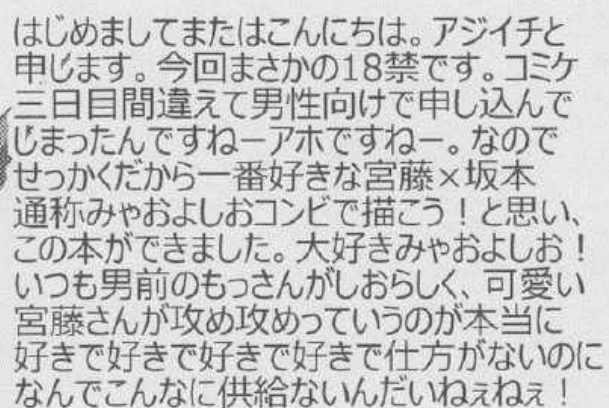 はじめましてまたはこんにちは。アジイチと
申します。今回まさかの18禁です。コミケ
三日目間違えて男性向けで申し込んで
じまったんですねーアホですねー。なので
せっかくだから一番好きな宮藤×坂本
通称みやおよしおコンビで描こう！と思い、
この本ができました。大好きみゃおよしお！
いつも男前のもっさんがしおらしく、可愛い
宮藤さんが攻め攻めっていうのが本当に
好きで好きで好きで好きで仕方がないのに
なんでこんなに供給ないんだいねぇねぇ！